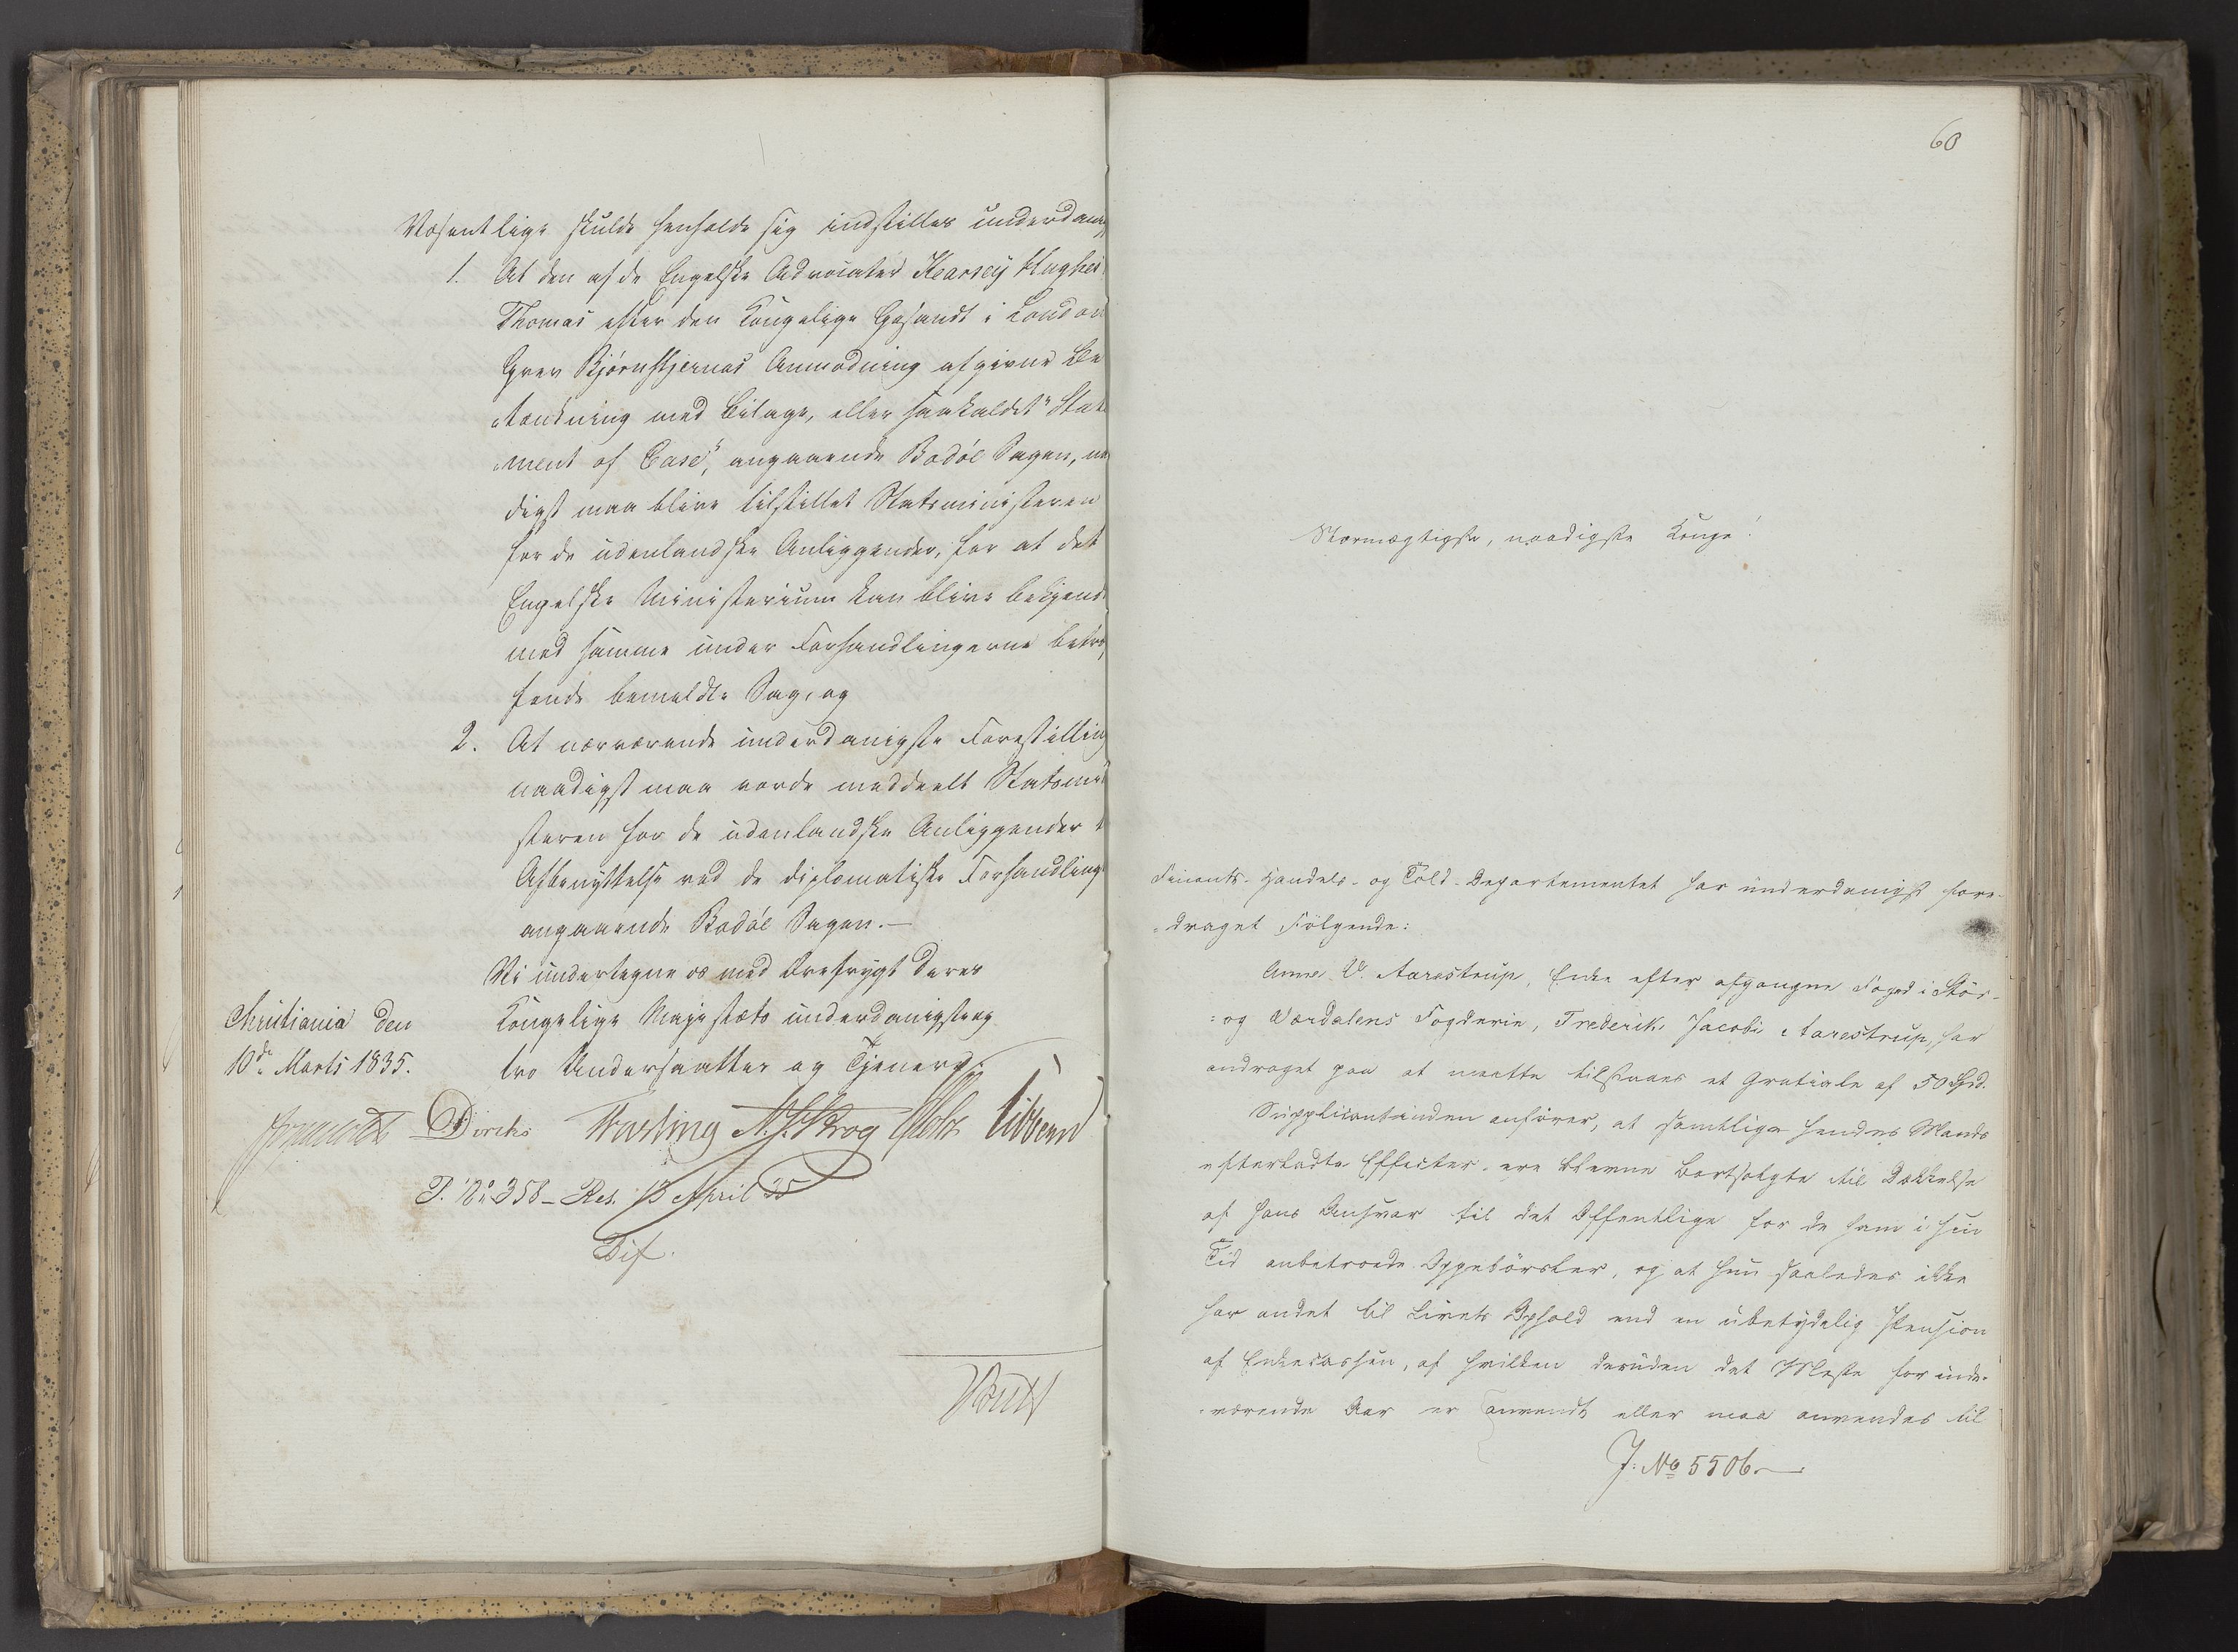 Væsentlige skulde henholde sig indstilles underdanig
1. At den af de Engelske Advocater Kearsey Hughes
Thomas efter den Kongelige Gesandt i London
Grev Bjørnstjernas Anmodning afgivne Be
tænkning med Bilage, eller saakaldet "State
ment of Case", angaaende Bodöe Sagen, naa
digst maa blive tilstillet Statsministeren
for de udenlandske Anliggender, for at det
Engelske Ministerium kan blive bekjendt
med samme under Forhandlingerne betræf
fende bemeldte Sag, og
2. At nærværende underdanigste Forestilling
naadigst maa vorde meddeelt Statsmini
steren for de udenlandske Anliggender t
Afbenyttelse ved de diplomatiske Forhandlinge
angaaende Bodöe Sagen.—
Vi undertegne os med Ærefrygt Deres
Christiania den Kongelige Majestæts underdanigste og
10de Marts 1835. tro Undersaatter og Tjenere.
Diriks Fasting Krog Holst Vibe
P. No 358 — Res. 13 April 35
60
Stormægtigste, naadigste Konge!
Finants- Handels- og Told-Departementet har underdanigst fore-
draget Fölgende:
Anne V. Aarestrup, Enke efter afgangne Foged i Stör-
og Værdalens Fogderie, Frederik Jacobi Aarestrup, har
andraget paa at maatte tilstaaes et Gratiale af 50 Spd.
Supplicantinden anförer, at samtlige hendes Mands
efterladte Effecter ere blevne bortsolgte til Dækkelse
af hans Ansvar til det Offentlige for de ham i sin
Tid anbetroede Oppebörsler, og at hun saaledes ikke
har andet til Livets Ophold end en ubetydelig Pension
af Enkecassen, af hvilken desuden det Meste for inde-
værende Aar er anvendt eller maa anvendes til
J. No 5506.—